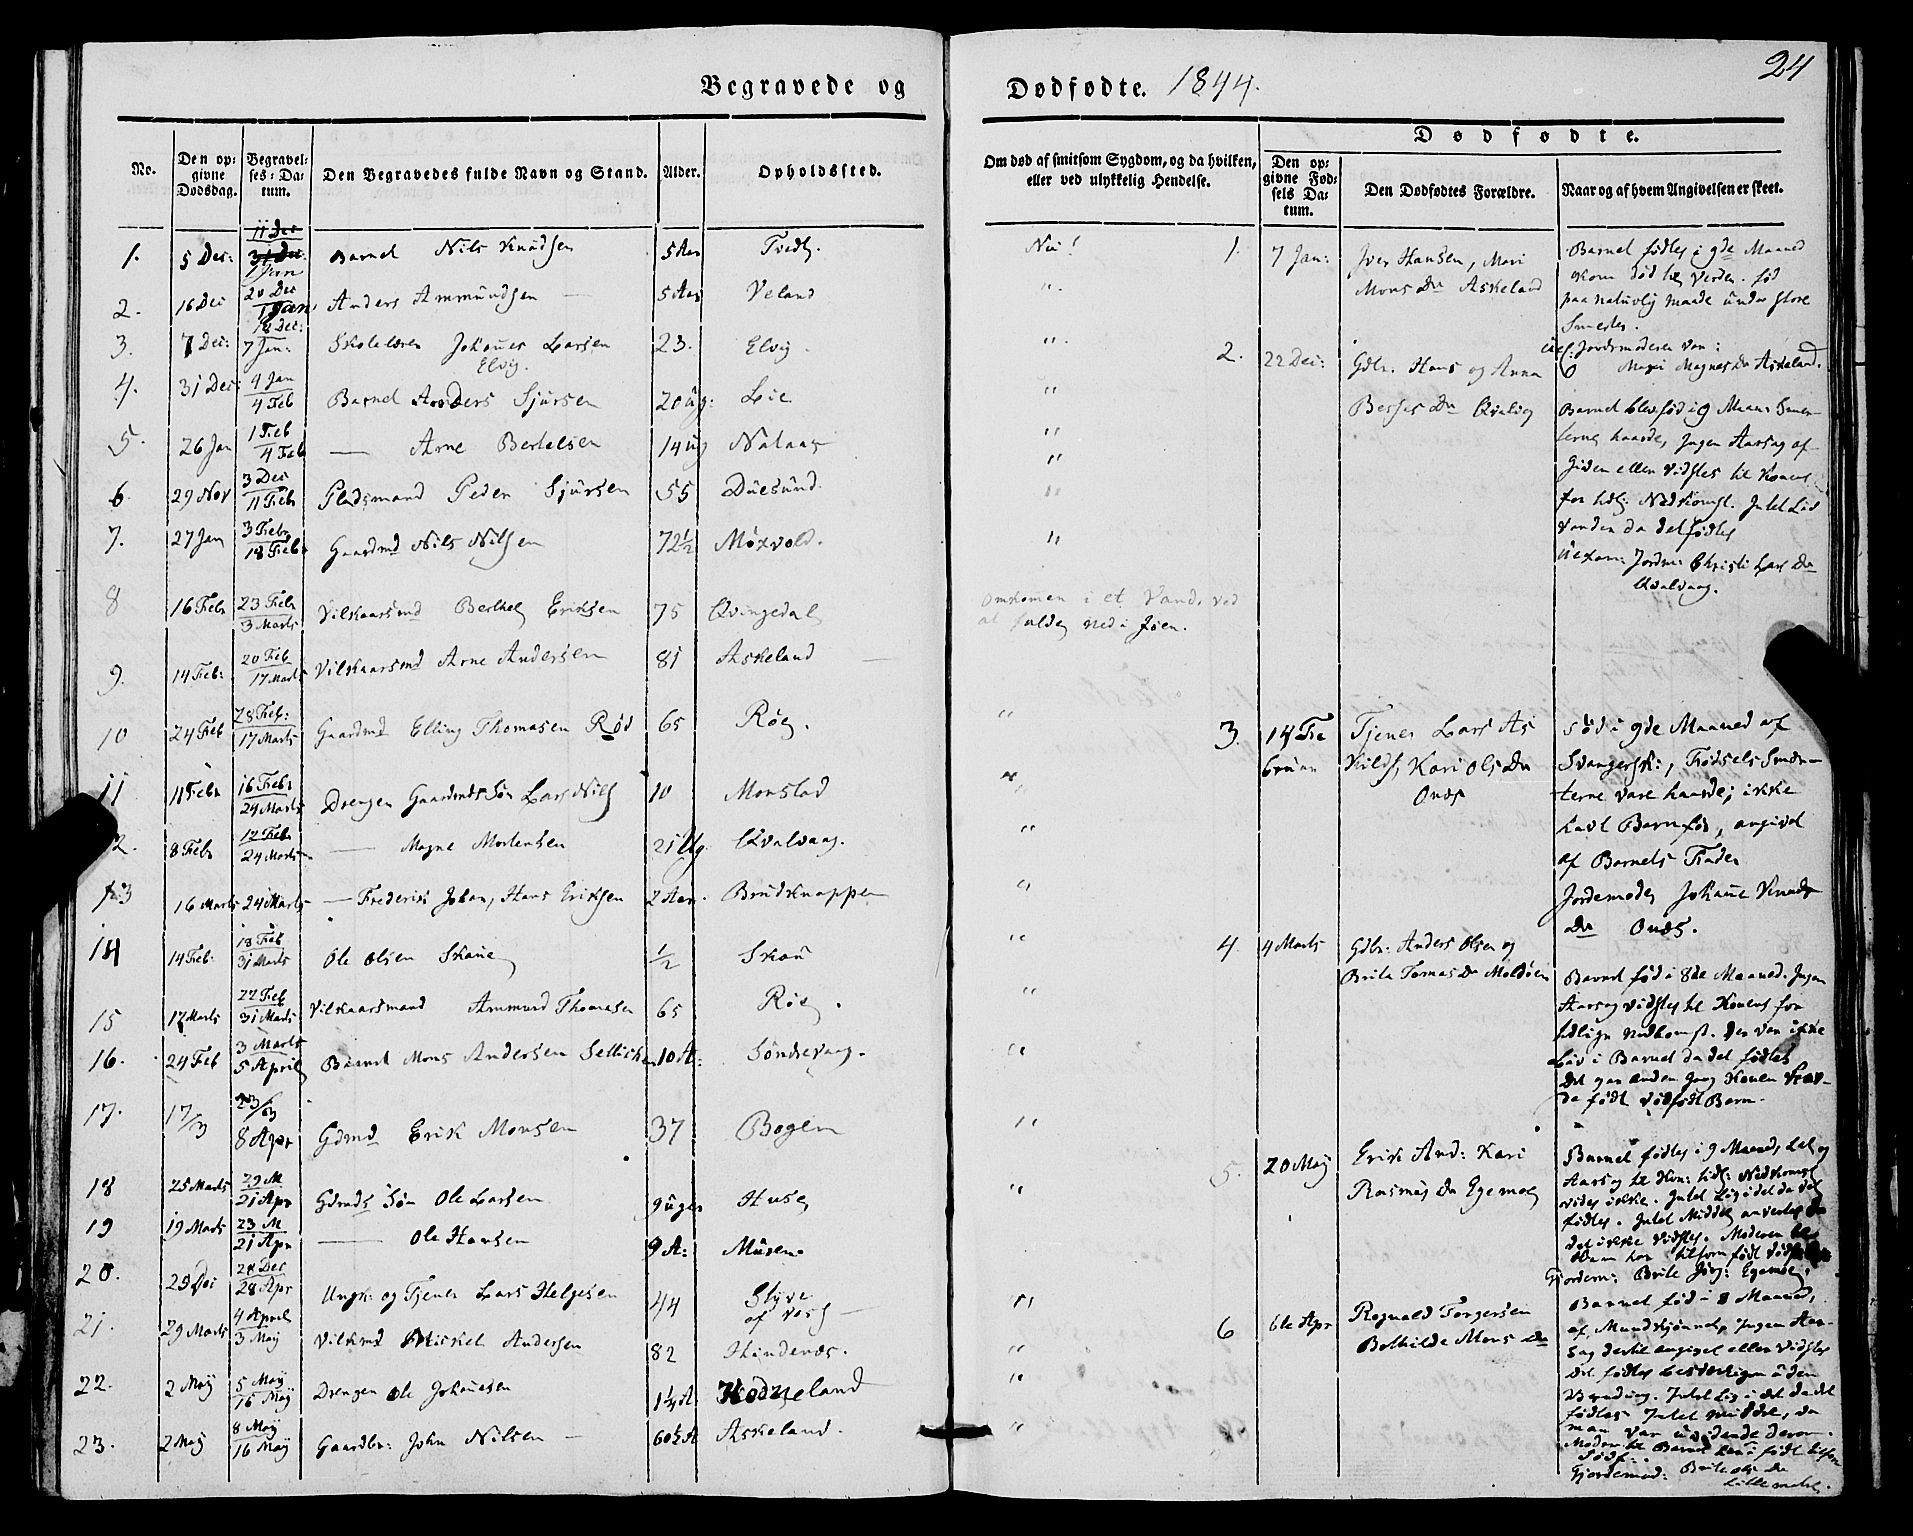 Begravede og
Dødfødte. 1844.
24
No.
Den opgivne Dødsdag.
Begravelses-Datum.
Den Begravedes fulde Navn og Stand.
Alder.
Opholdssted.
Om død af smitsom Sygdom, og da hvilken, eller ved ulykkelig Hendelse.
Dødfødte.
Den opgivne Fødsels Datum.
Den Dødfødtes Forældre.
Naar og af hvem Angivelsen er skeet.
1. 5 Dec: 11 Dec 1 Jan Barnet Nils Knudsen 5 Aar Tvedt. Nei!
2. 16 Dec 20 Dec 1 Jan Anders Ammundsen 5 Aar Veland "
3. 7 Dec: 18 Dec: 7 Jan: Skolelæren Johannes Larsen 23. Elvig. "
Elvig.
4. 31 Dec: 4 Jan 4 Feb Barnet Anders Sjursen 20 ug: Lie "
5. 26 Jan 1 Feb 4 Feb — Arne Bertelsen 14 ug Nataas "
6. 29 Nov 3 Dec 11 Feb Pladsmand Peder Sjursen 55 Duesund "
7. 27 Jan 3 Febr 18 Feb: Gaardmd Nils Nilsen 72½ Moxvold. "
8 16 Febr 23 Febr 3 Marts Vilkaarsmd Berthel Eriksen 75 Qvingedal Omkomen i et Vand, ved
at falde ned i Isen.
9. 14 Feb: 20 Feb 17 Marts Vilkaarsmd Arne Andersen 81 Askeland
10 24 Feb 28 Feb: 17 Marts Gaardmd Elling Thomasen Rød 65 "
11 11 Febr 16 Febr 24 Marts Drengen Gaardmds Søn Lars Nils 10 Monstad "
12. 8 Febr 12 Febr 24 Marts — Magne Mortensen 21 Ug. Qvalvaag. "
13 16 Marts 24 Marts — Frederik Johan, Hans Eriksen 2 Aar. Brudknappen "
14 14 Feb: 18 Feb 31 Marts Ole Olsen ½ "
15 17 Marts 22 Feb 31 Marts Vilkaarsmand Ammund Thomasen 65 "
16. 24 Feb 3 Marts 5 April Barnet Mons Andersen 10 A: Søndrevaag. "
17. 17/3 23/3 8 Apr Gdmd Erik Monsen 37 Bogen "
18 25 Marts 29 M 21 Apr Gdmds Søn Ole Larsen 9 uger Huse "
19 19 Marts 23 M 21 Apr — Ole Hansen 9 A:
20. 28 Dec 28 Apr Ungk: og Tjener Lars Helgesen 44 "
af Voss
21. 29 Marts 4 April 3 Maij Vilkmd Mickel Andersen 82 Hindenæs. "
22. 2 Maij 5 Maij 16 Maij Drengen Ole Johanesen 1¼ A Hodneland "
23. 2 Maij 8 Maij 16 Maij Gaardbr: John Nilsen 60½ A Askeland. "
1. 7 Jan: Iver Hansen, Mari
Mons Dr Askeland
Barnet fødtes i 9de Maaned
kom død til Verden. fød
paa naturlig maade under store
Smerter.
Jordemoderen var:
Magnes Dr Askeland.
2. 22 Dec: Gdbr. Hans og Anna
Dr Qvalvig
Barnet blev fød i 9 Maan: Smer-
terne haarde, Ingen Aarsag af-
given eller vidstes til Konens
for tidl: Nedkomst. Intet Liv
var den da det fødtes
Jordm: Christi Lars Dr
Qvalvaag.
3. 14 Februar Tjener Lars As
Kari Ols Dr
Født i 9de Maaned af
Svangersk:, Fødsels Smer-
terne vare haarde; ikke
havt Barn før, angivet
af Barnets Fader
Jordemoder Johane Knuds
Dr
4. 4 Marts Gdbr: Anders Olsen og
Brite Tomas Dr Moldøen
Barnet fød i 8de Maaned. Ingen
Aarsag vidstes til Konens for
tidlige nedkomst. Der var ikke
Liv i Barnet da det fødtes
Det var anden Gang Konen hav-
de født dødfødt Barn.
5. 20 Maij Erik And: Kari
Rasmus Dr
Barnet fødtes i 9 Maaned,
Aarsag til Kon: tidl: Nedkomst
vides ikke. Intet Liv i det da det
fødtes. Intet Middel anvendtes da
det ikke vidstes. Moderen til
Barn har tilforn født
Gjordem: Brite
6 6te Apr Rognald Torgersen
Bothilde Mons Dr
Barnet fød i 8 Maaned,
af Mandkjønnet, Ingen Aar-
sag dertil angivet eller vidstes
det fødtes
Intet Liv i det da det
fødtes Intet middel, da
man var uvidende derom.
Moder til Barnet har født tilforn
Gjordemod: Brite Ols Dr